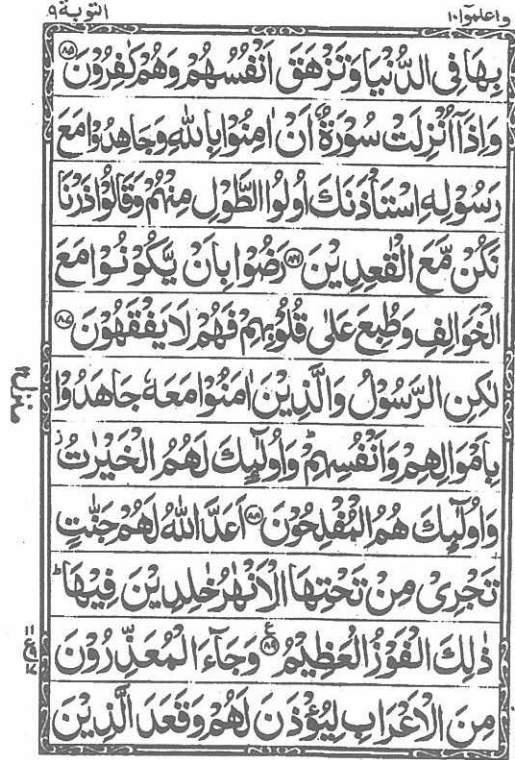 واعلموا ۱۰ التوبة ۹
بِهَا فِى الدُّنْيَا وَتَزْهَقَ اَنْفُسُهُمْ وَهُمْ كٰفِرُوْنَ ۝۸۵
وَاِذَاۤ اُنْزِلَتْ سُوْرَةٌ اَنْ اٰمِنُوْا بِاللّٰهِ وَجَاهِدُوْا مَعَ
رَسُوْلِهِ اسْتَاْذَنَكَ اُولُوا الطَّوْلِ مِنْهُمْ وَقَالُوْا ذَرْنَا
نَكُنْ مَّعَ الْقٰعِدِيْنَ ۝۸۶ رَضُوْا بِاَنْ يَّكُوْنُوْا مَعَ
الْخَوَالِفِ وَطُبِعَ عَلٰى قُلُوْبِهِمْ فَهُمْ لَا يَفْقَهُوْنَ ۝۸۷
لٰكِنِ الرَّسُوْلُ وَالَّذِيْنَ اٰمَنُوْا مَعَهٗ جَاهَدُوْا
بِاَمْوَالِهِمْ وَاَنْفُسِهِمْ ؕ وَاُولٰٓئِكَ لَهُمُ الْخَيْرٰتُ ؗ
وَاُولٰٓئِكَ هُمُ الْمُفْلِحُوْنَ ۝۸۸ اَعَدَّ اللّٰهُ لَهُمْ جَنّٰتٍ
تَجْرِىْ مِنْ تَحْتِهَا الْاَنْهٰرُ خٰلِدِيْنَ فِيْهَا ؕ
ذٰلِكَ الْفَوْزُ الْعَظِيْمُ ۝۸۹ ع وَجَآءَ الْمُعَذِّرُوْنَ
مِنَ الْاَعْرَابِ لِيُؤْذَنَ لَهُمْ وَقَعَدَ الَّذِيْنَ
منزل ۲